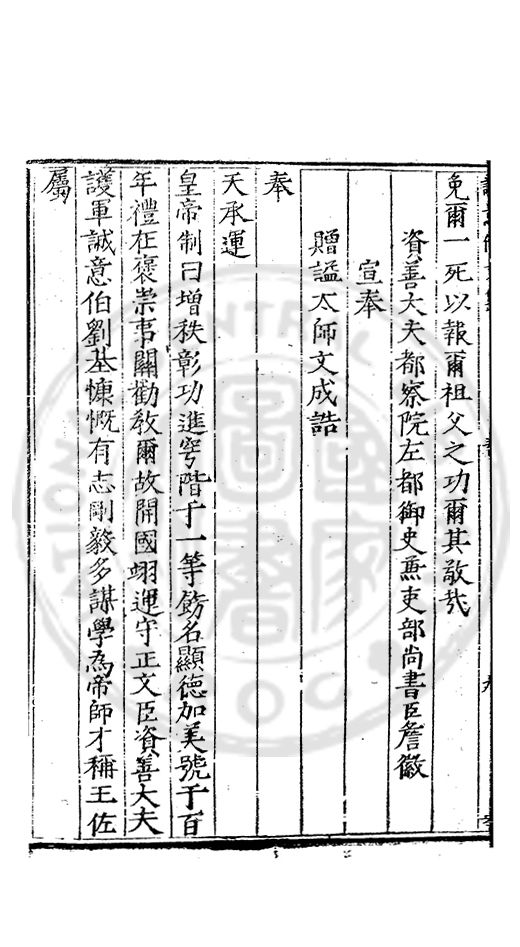 免爾一死以報爾祖父之功爾其敬哉
資善大夫都察院左都御史兼吏部尚書臣詹徽
宣奉
贈謚太師文成誥
奉
天承運
皇帝制曰增秩彰功進穹階于一等飭名顯德加美號于百
年禮在褒崇事關勸教爾故開國翊運守正文臣資善大夫
護軍誠意伯劉基慷慨有志剛毅多謀學為帝師才稱王佐
屬